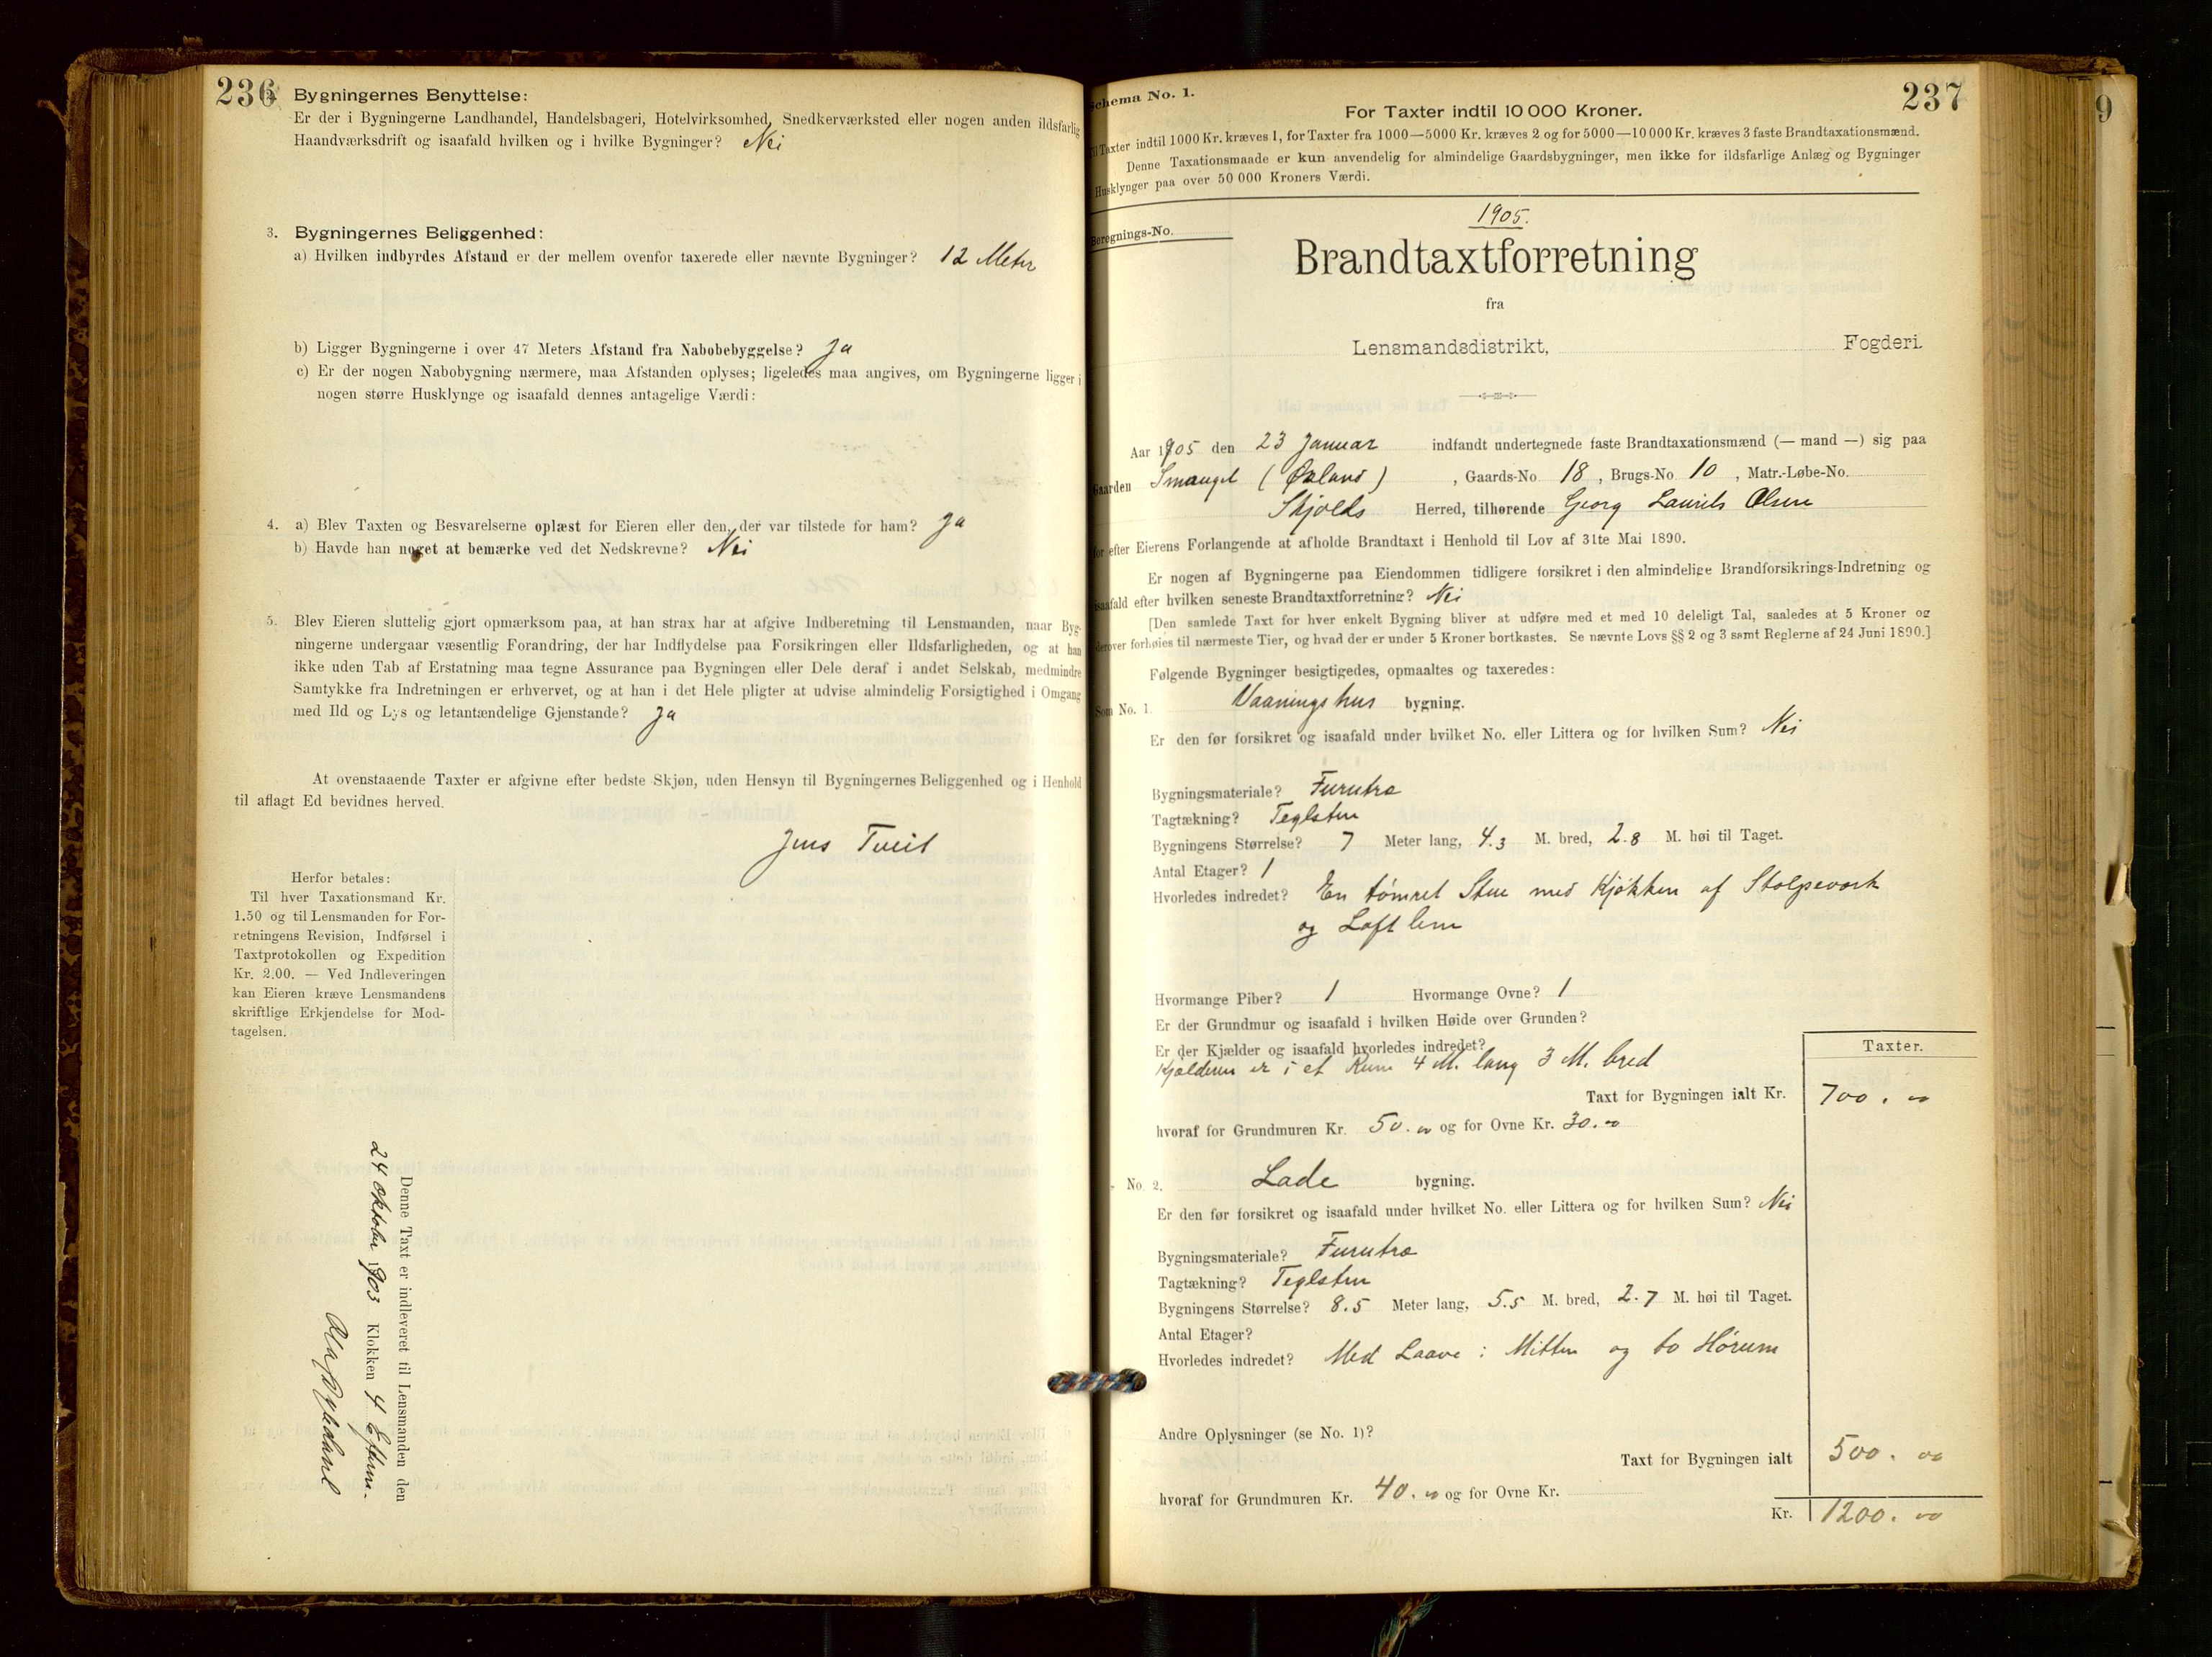 236
2. Bygningernes Benyttelse:
Er der i Bygningerne Landhandel, Handelsbageri, Hotelvirksomhed, Snedkerværksted eller nogen anden ildsfarlig
Haandværksdrift og isaafald hvilken og i hvilke Bygninger? Nei
3. Bygningernes Beliggenhed:
a) Hvilken indbyrdes Afstand er der mellem ovenfor taxerede eller nævnte Bygninger? 12 Meter
b) Ligger Bygningerne i over 47 Meters Afstand fra Nabobebyggelse? Ja
c) Er der nogen Nabobygning nærmere, maa Afstanden oplyses; ligeledes maa angives, om Bygningerne ligger i
nogen større Husklynge og isaafald dennes antagelige Værdi:
4. a) Blev Taxten og Besvarelserne oplæst for Eieren eller den, der var tilstede for ham? Ja
b) Havde han noget at bemærke ved det Nedskrevne? Nei
5. Blev Eieren sluttelig gjort opmærksom paa, at han strax har at afgive Indberetning til Lensmanden, naar Byg-
ningerne undergaar væsentlig Forandring, der har Indflydelse paa Forsikringen eller Ildsfarligheden, og at han
ikke uden Tab af Erstatning maa tegne Assurance paa Bygningen eller Dele deraf i andet Selskab, medmindre
Samtykke fra Indretningen er erhvervet, og at han i det Hele pligter at udvise almindelig Forsigtighed i Omgang
med Ild og Lys og letantændelige Gjenstande? Ja
At ovenstaaende Taxter er afgivne efter bedste Skjøn, uden Hensyn til Bygningernes Beliggenhed og i Henhold
til aflagt Ed bevidnes herved.
Jens Tveit
Herfor betales:
Til hver Taxationsmand Kr.
1.50 og til Lensmanden for For-
retningens Revision, Indførsel i
Taxtprotokollen og Expedition
Kr. 2.00. — Ved Indleveringen
kan Eieren kræve Lensmandens
skriftlige Erkjendelse for Mod-
tagelsen.
Denne Taxt er indleveret til Lensmanden den
24 oktober 1903 Klokken 4 Efterm.
237
Schema No. 1.
For Taxter indtil 10 000 Kroner.
Til Taxter indtil 1000 Kr. kræves 1, for Taxter fra 1000—5000 Kr. kræves 2 og for 5000—10 000 Kr. kræves 3 faste Brandtaxationsmænd.
Denne Taxationsmaade er kun anvendelig for almindelige Gaardsbygninger, men ikke for ildsfarlige Anlæg og Bygninger
Husklynger paa over 50 000 Kroners Værdi.
1905.
Beregnings-No.
Brandtaxtforretning
fra
Lensmandsdistrikt, Fogderi.
Aar 1905 den 23 Januar indfandt undertegnede faste Brandtaxationsmænd (— mand —) sig paa
Gaarden Smauget (Øxland), Gaards-No. 18, Brugs-No. 10, Matr.-Løbe-No.
Skjolds Herred, tilhørende Georg Laurits Olsen
for efter Eierens Forlangende at afholde Brandtaxt i Henhold til Lov af 31te Mai 1890.
Er nogen af Bygningerne paa Eiendommen tidligere forsikret i den almindelige Brandforsikrings-Indretning og
isaafald efter hvilken seneste Brandtaxtforretning? Nei
[Den samlede Taxt for hver enkelt Bygning bliver at udføre med et med 10 deleligt Tal, saaledes at 5 Kroner og
derover forhøies til nærmeste Tier, og hvad der er under 5 Kroner bortkastes. Se nævnte Lovs §§ 2 og 3 samt Reglerne af 24 Juni 1890.]
Følgende Bygninger besigtigedes, opmaaltes og taxeredes:
Som No. 1. Vaaningshus bygning.
Er den før forsikret og isaafald under hvilket No. eller Littera og for hvilken Sum? Nei
Bygningsmateriale? Furutræ
Tagtækning? Teglsten
Bygningens Størrelse? 7 Meter lang, 4.3 M. bred, 2.8 M. høi til Taget.
Antal Etager? 1
Hvorledes indredet? En tømret Stue med Kjøkken af Stolpeverk
og Loft lem
Hvormange Piber? 1 Hvormange Ovne? 1
Er der Grundmur og isaafald i hvilken Høide over Grunden?
Er der Kjælder og isaafald hvorledes indredet?
Kjælderen er i et Rum 4 M. lang 3 M. bred
Taxter.
Taxt for Bygningen ialt Kr. 700. 00
hvoraf for Grundmuren Kr. 50. 00 og for Ovne Kr. 30. 00
- No. 2. Lade bygning.
Er den før forsikret og isaafald under hvilket No. eller Littera og for hvilken Sum? Nei
Bygningsmateriale? Furutræ
Tagtækning? Teglsten
Bygningens Størrelse? 8.5 Meter lang, 5.5 M. bred, 2.7 M. høi til Taget.
Antal Etager?
Hvorledes indredet? Med Laave i Mitten og to Hørum
Andre Oplysninger (se No. 1)?
Taxt for Bygningen ialt 500. 00
hvoraf for Grundmuren Kr. 40. 00 og for Ovne Kr.
Kr. 1200. 00
9